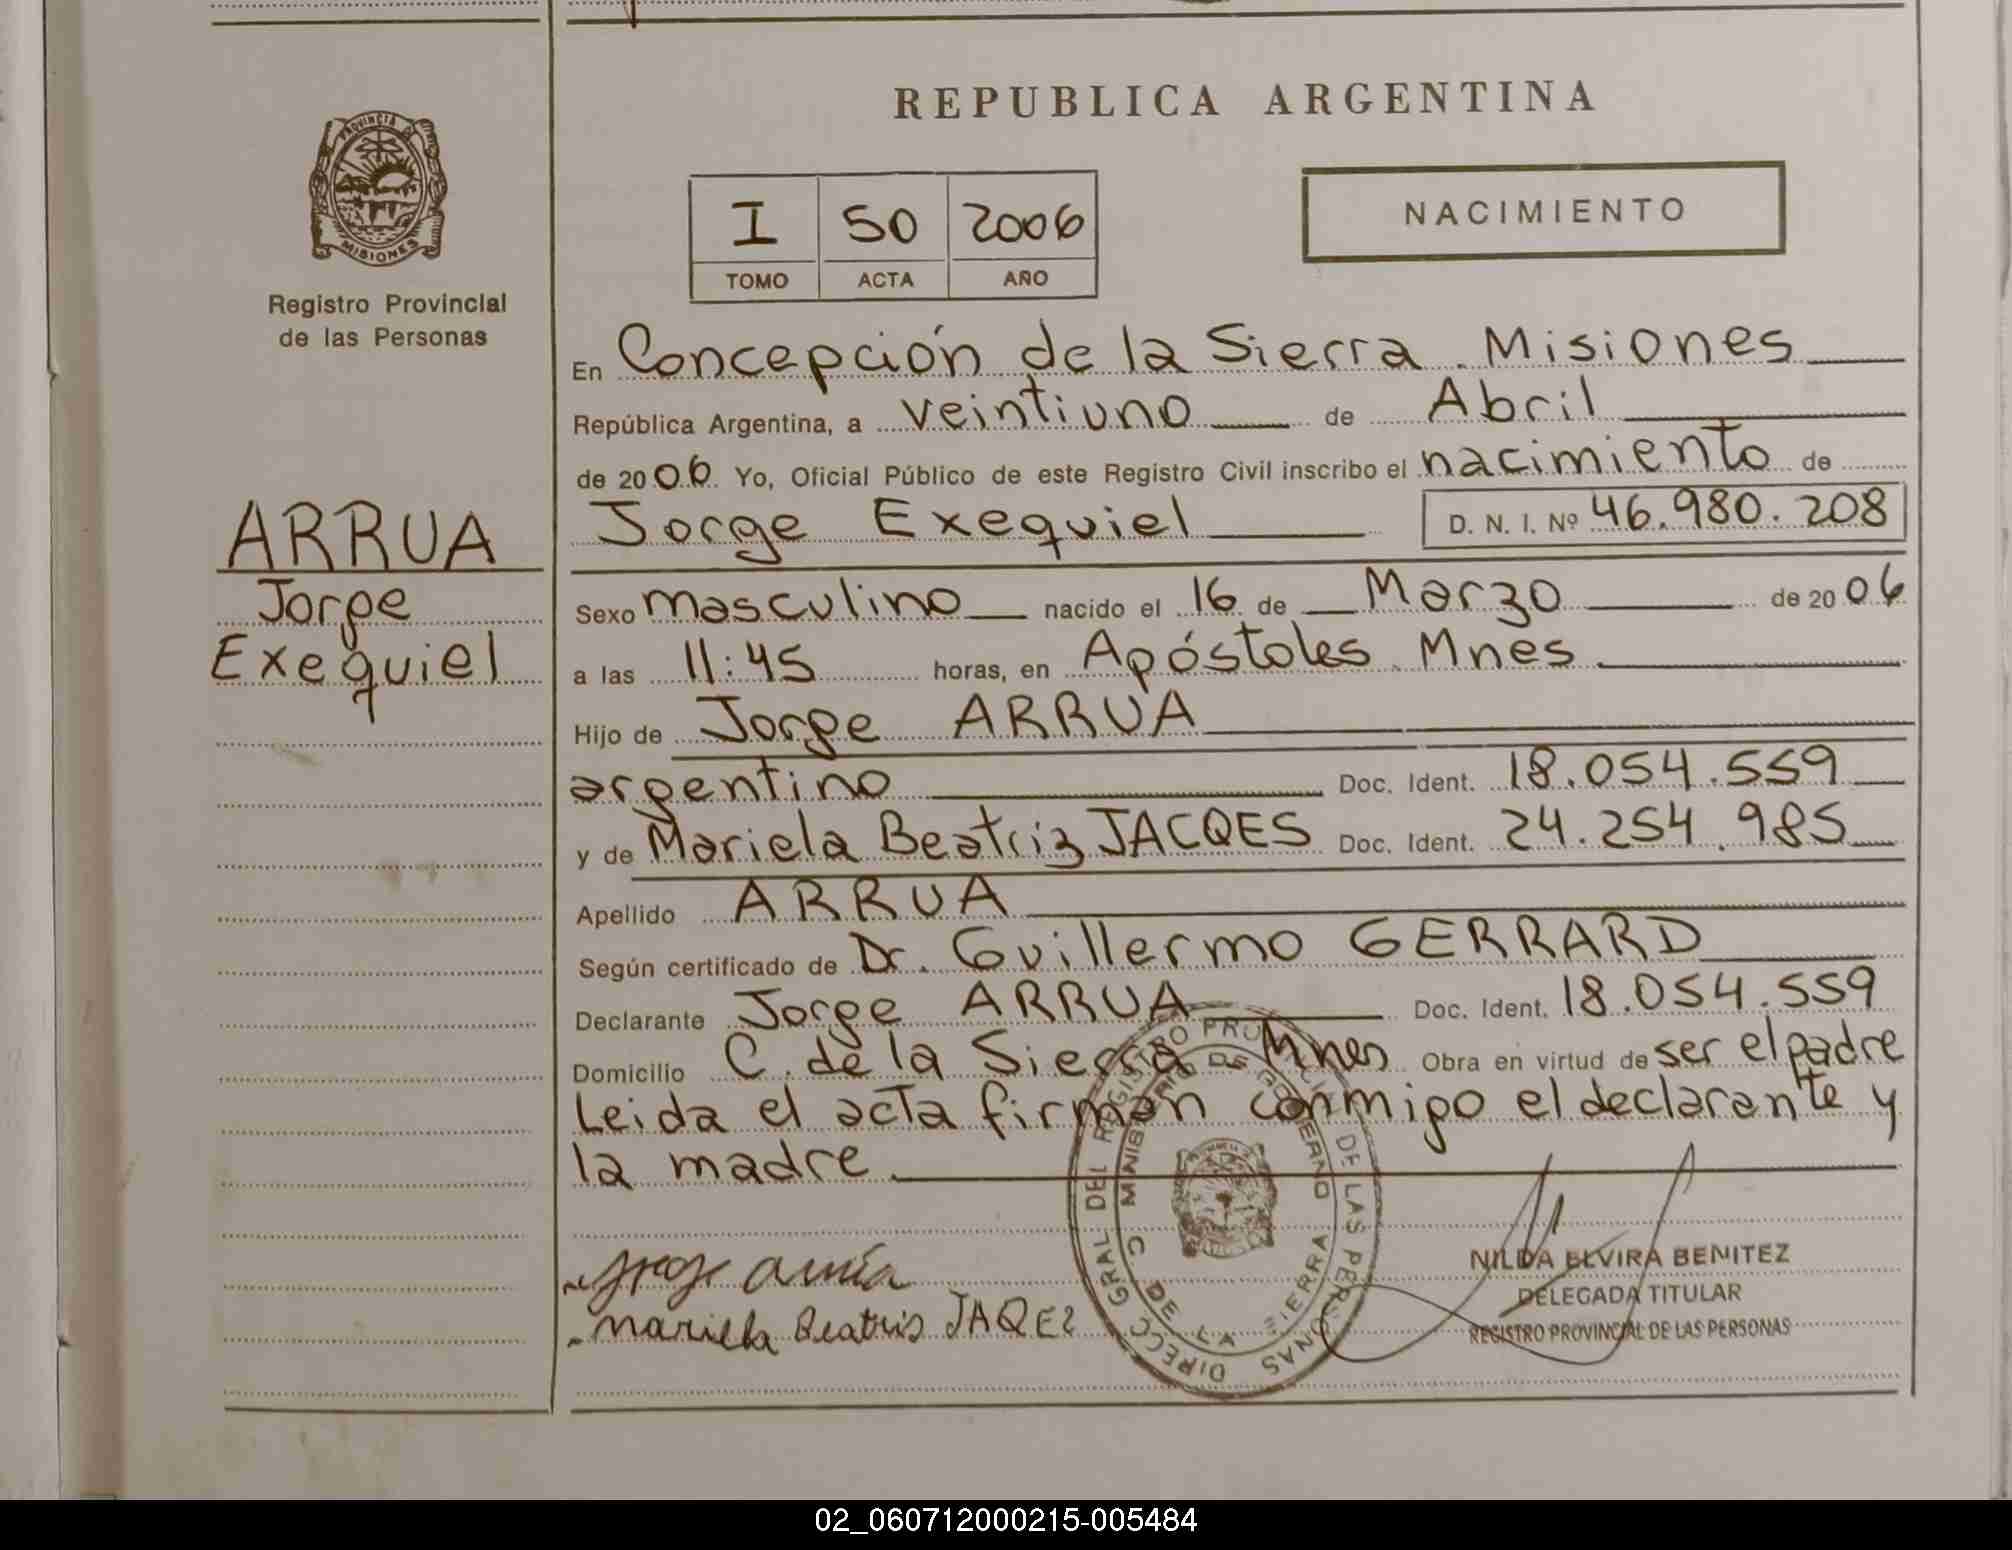 REPUBLICA ARGENTINA
PROVINCIA DE
MISIONES
Registro Provincial
de las Personas
I 50 2006
TOMO ACTA AÑO
NACIMIENTO
ARRUA
Jorge
Exequiel
En Concepción de la Sierra. Misiones
República Argentina, a veintiuno de Abril
de 2006 Yo, Oficial Público de este Registro Civil inscribo el nacimiento de
Jorge Exequiel D. N. I. Nº 46.980.208
Sexo masculino nacido el 16 de Marzo de 2006
a las 11:45 horas, en Apóstoles. Mnes
Hijo de Jorge ARRUA
argentino Doc. Ident. 18.054.559
y de Mariela Beatriz JACQES Doc. Ident. 24.254.985
Apellido ARRUA
Según certificado de Dr. Guillermo GERRARD
Declarante Jorge ARRUA Doc. Ident. 18.054.559
Domicilio C. de la Sierra Mnes Obra en virtud de ser el padre
Leida el acta firman conmigo el declarante y
la madre
DIRECC GRAL DEL REGISTRO PROVINCIAL DE LAS PERSONAS
MINISTERIO DE GOBIERNO
C. DE LA SIERRA
Mariela Beatris JAQEZ
NILDA ELVIRA BENITEZ
DELEGADA TITULAR
REGISTRO PROVINCIAL DE LAS PERSONAS
02_060712000215-005484